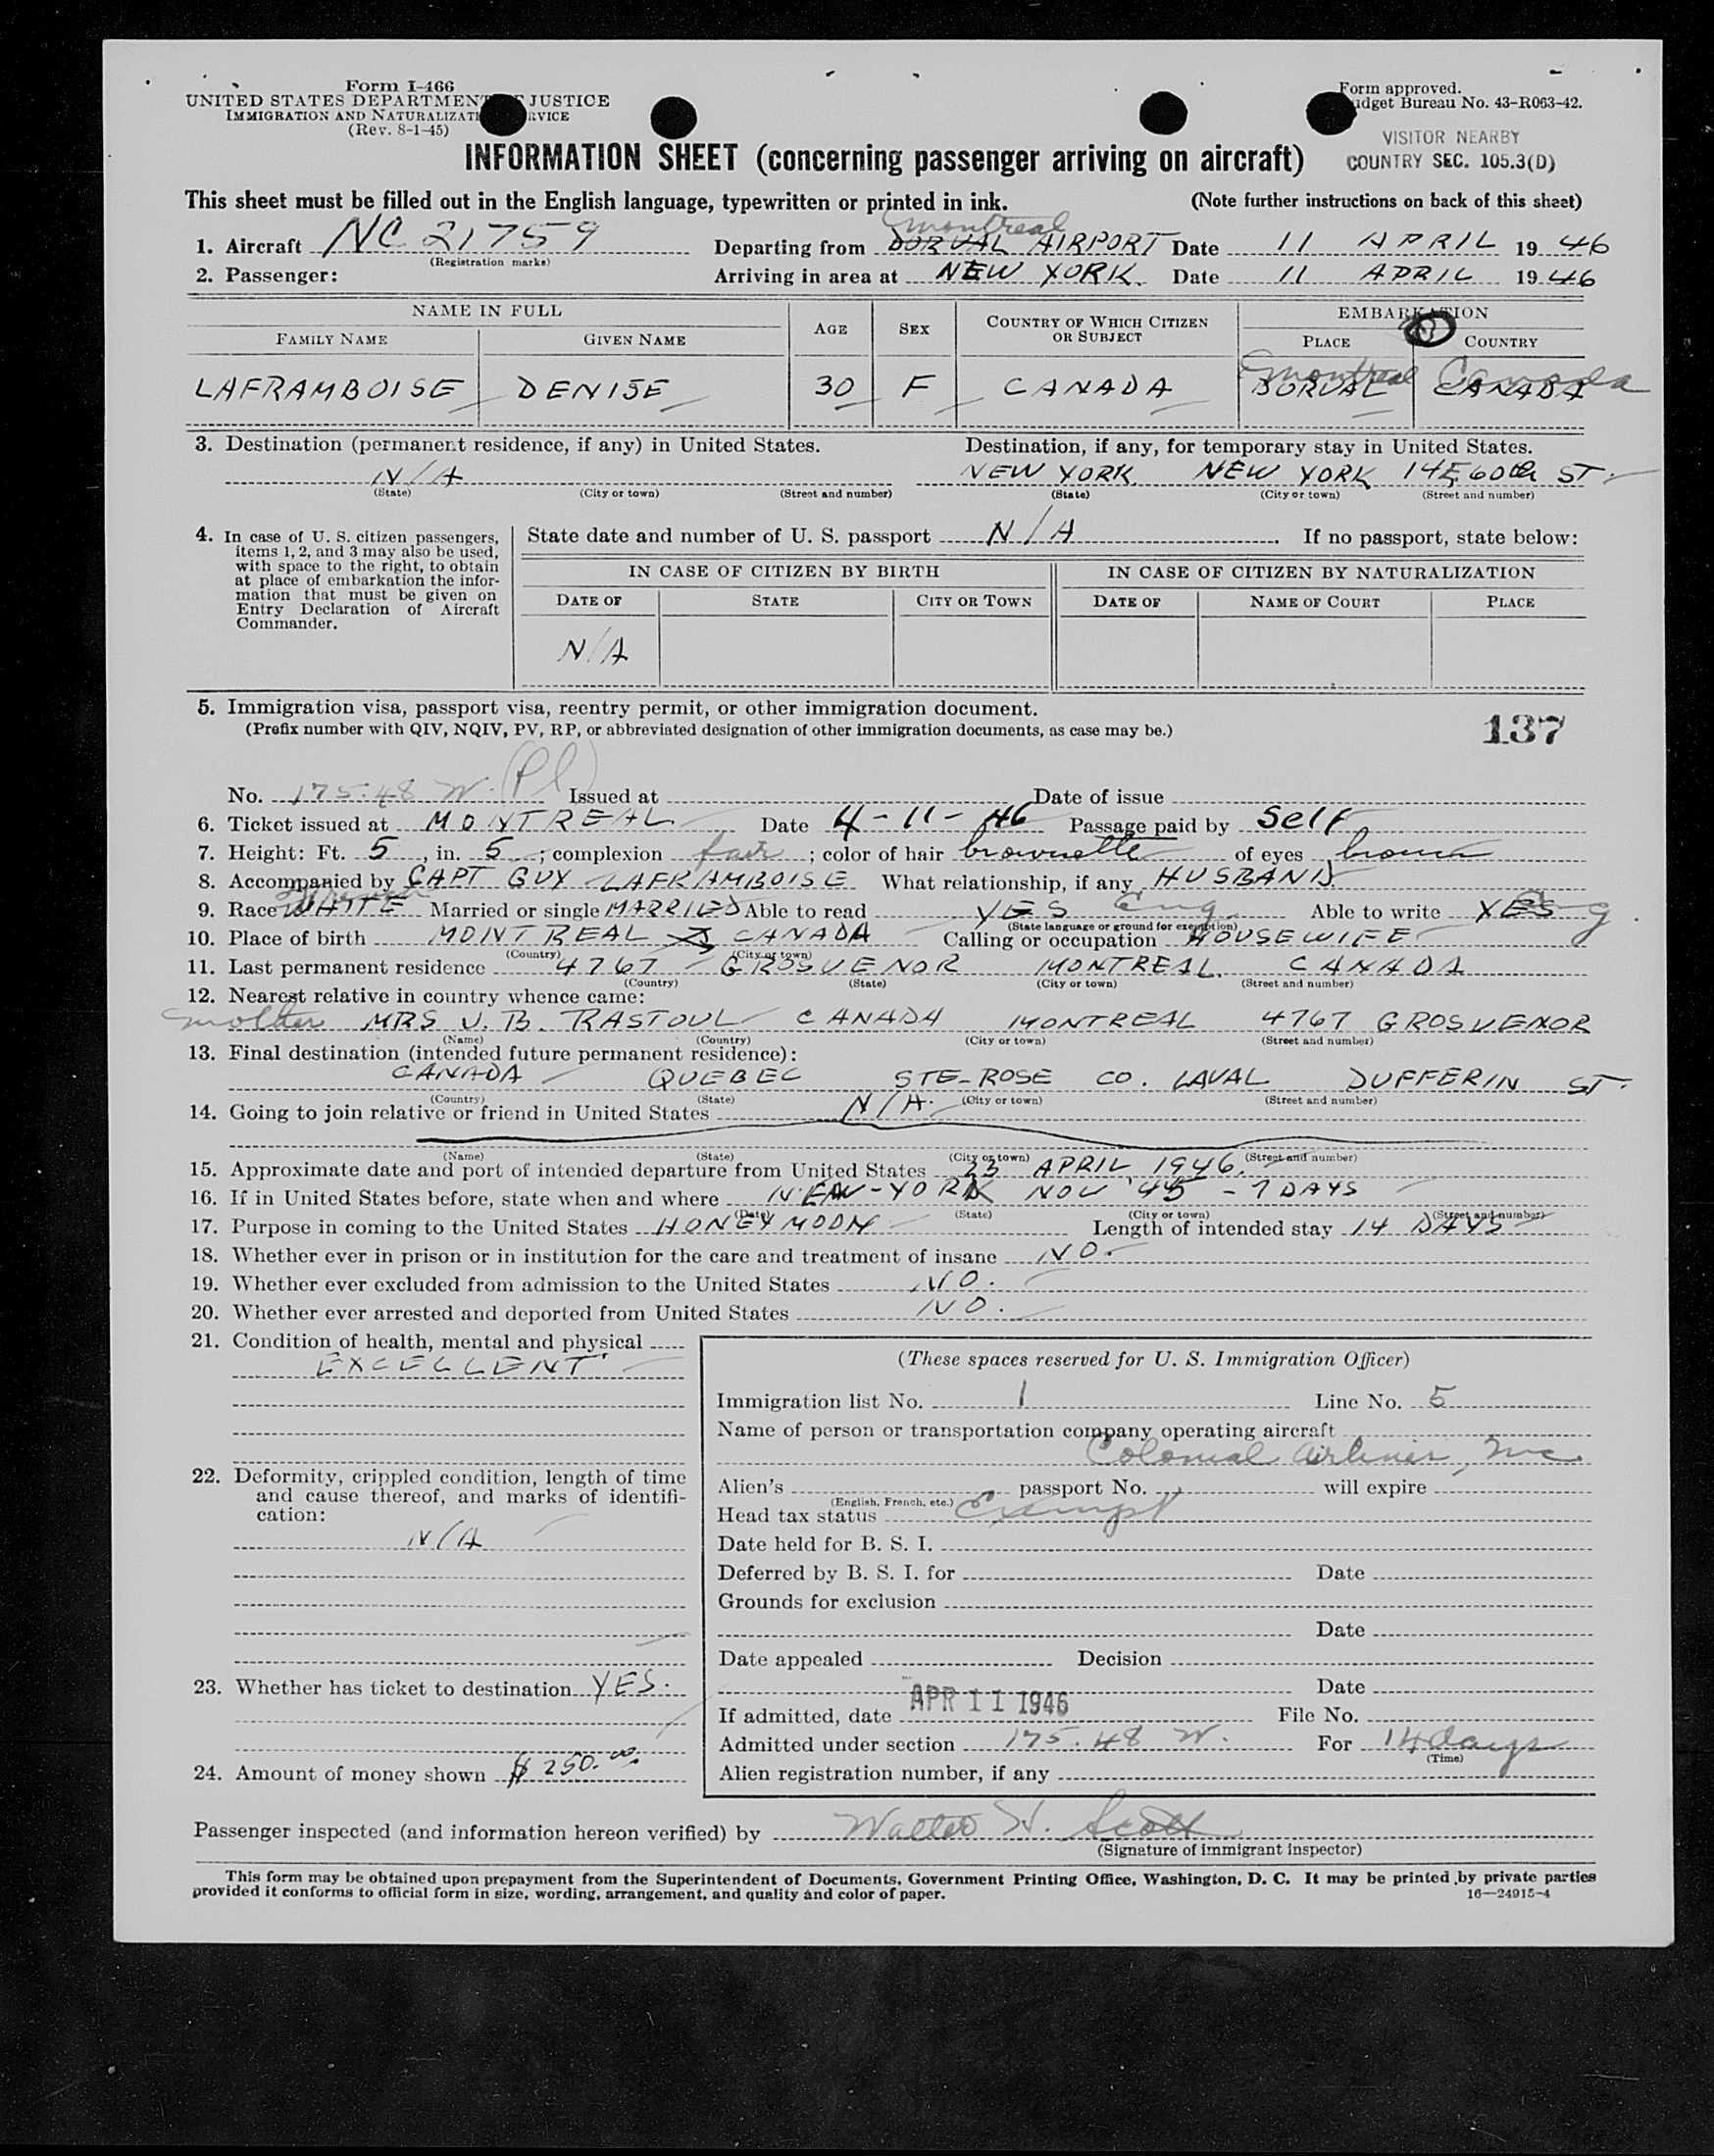 Form I-466
UNITED STATES DEPARTMENT JUSTICE
IMMIGRATION AND NATURALIZATI RVICE
(Rev. 8-1-45)
Form approved.
udget Bureau No. 43-R063-42.
VISITOR NEARBY
COUNTRY SEC. 105.3(D)
INFORMATION SHEET (concerning passenger arriving on aircraft)
This sheet must be filled out in the English language, typewritten or printed in ink. (Note further instructions on back of this sheet)
montreal
1. Aircraft NC 21759 Departing from DORVAL AIRPORT Date 11 APRIL 1946
(Registration marks)
2. Passenger: Arriving in area at NEW YORK. Date 11 APRIL 1946
NAME IN FULL AGE SEX COUNTRY OF WHICH CITIZEN OR SUBJECT EMBARKATION
FAMILY NAME GIVEN NAME PLACE COUNTRY
montreal Canada
LAFRAMBOISE DENISE 30 F CANADA DORVAL CANADA
3. Destination (permanent residence, if any) in United States. Destination, if any, for temporary stay in United States.
N/A NEW YORK NEW YORK 14E 60th ST.
(State) (City or town) (Street and number) (State) (City or town) (Street and number)
4. In case of U. S. citizen passengers, items 1, 2, and 3 may also be used, with space to the right, to obtain at place of embarkation the information that must be given on Entry Declaration of Aircraft Commander.
State date and number of U. S. passport N/A. If no passport, state below:
IN CASE OF CITIZEN BY BIRTH IN CASE OF CITIZEN BY NATURALIZATION
DATE OF STATE CITY OR TOWN DATE OF NAME OF COURT PLACE
N/A
5. Immigration visa, passport visa, reentry permit, or other immigration document.
(Prefix number with QIV, NQIV, PV, RP, or abbreviated designation of other immigration documents, as case may be.)
137
No. 175.48 W. (Pl) Issued at Date of issue
6. Ticket issued at MONTREAL Date 4-11-46 Passage paid by Self
7. Height: Ft. 5, in. 5; complexion fair; color of hair brownette of eyes brown
8. Accompanied by CAPT GUY LAFRAMBOISE What relationship, if any HUSBAND
French
9. Race WHITE Married or single MARRIED Able to read YES Eng. Able to write YES Eng.
(State language or ground for exemption)
10. Place of birth MONTREAL CANADA Calling or occupation HOUSEWIFE
(Country) (City or town)
11. Last permanent residence 4767 GROSVENOR MONTREAL CANADA
(Country) (State) (City or town) (Street and number)
12. Nearest relative in country whence came:
mother MRS J. B. RASTOUL CANADA MONTREAL 4767 GROSVENOR
(Name) (Country) (City or town) (Street and number)
13. Final destination (intended future permanent residence):
CANADA QUEBEC STE-ROSE CO. LAVAL DUFFERIN ST.
(Country) (State) (City or town) (Street and number)
14. Going to join relative or friend in United States N/A.
(Name) (State) (City or town) (Street and number)
15. Approximate date and port of intended departure from United States 23 APRIL 1946.
16. If in United States before, state when and where NEW-YORK NOV '45 - 7 DAYS
(Date) (State) (City or town) (Street and number)
17. Purpose in coming to the United States HONEYMOON Length of intended stay 14 DAYS
18. Whether ever in prison or in institution for the care and treatment of insane NO.
19. Whether ever excluded from admission to the United States NO.
20. Whether ever arrested and deported from United States NO.
21. Condition of health, mental and physical
EXCELLENT
22. Deformity, crippled condition, length of time and cause thereof, and marks of identification:
N/A
23. Whether has ticket to destination YES.
24. Amount of money shown $250.00
(These spaces reserved for U. S. Immigration Officer)
Immigration list No. 1 Line No. 5
Name of person or transportation company operating aircraft
Colonial Airlines, Inc.
Alien's passport No. will expire
(English, French, etc.)
Head tax status Exempt
Date held for B. S. I.
Deferred by B. S. I. for Date
Grounds for exclusion
Date
Date appealed Decision
Date
If admitted, date APR 11 1946 File No.
Admitted under section 175.48 W. For 14 days
(Time)
Alien registration number, if any
Passenger inspected (and information hereon verified) by Walter H. Scott
(Signature of immigrant inspector)
This form may be obtained upon prepayment from the Superintendent of Documents, Government Printing Office, Washington, D. C. It may be printed by private parties
provided it conforms to official form in size, wording, arrangement, and quality and color of paper. 16—24915-4